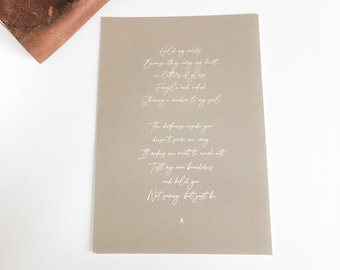 Hold my words
Because they carry my heart
in letters of glass
Fragile and naked
Showing a window to my soul
The darkness inside you
doesn't scare me away
It makes me want to reach out
Test my own boundaries
and hold you
Not saving, but just be